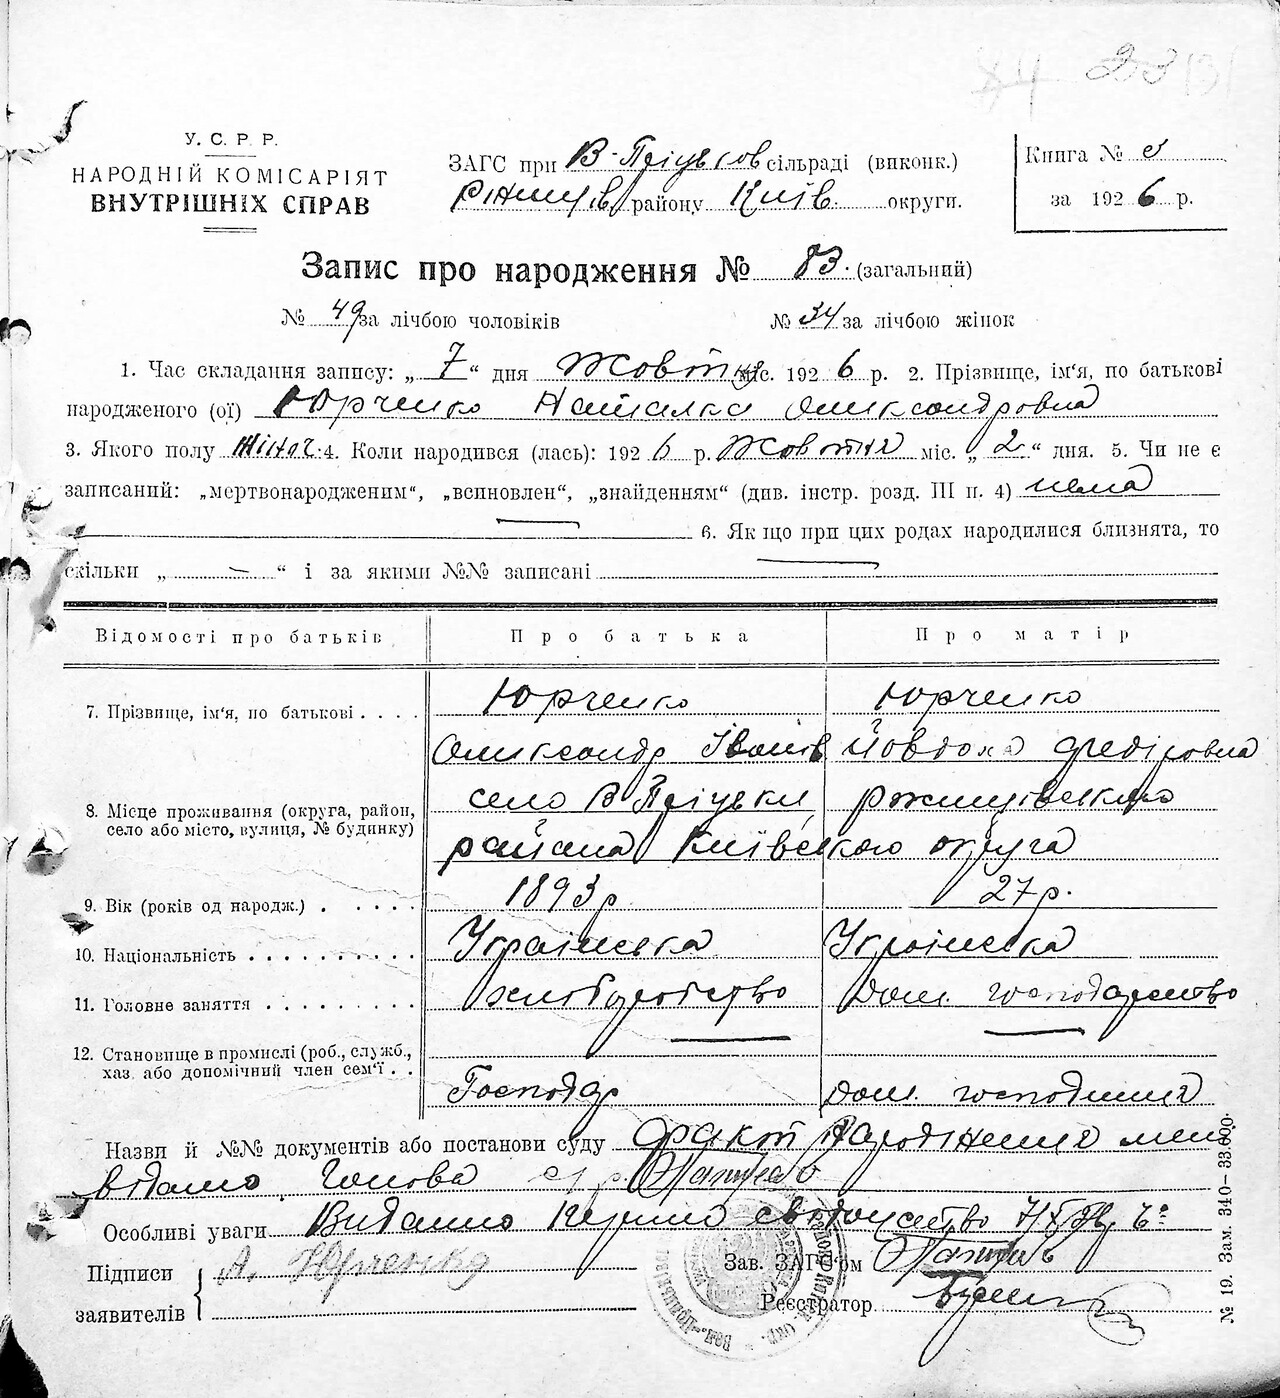 23
У. С. Р. Р.
НАРОДНІЙ КОМІСАРІЯТ
ВНУТРІШНІХ СПРАВ
ЗАГС при В-Пріцьков сільраді (виконк.)
району Київ. округи.
Книга №
за 1926 р.
Запис про народження № 83. (загальний)
№ 49 за лічбою чоловіків № 34 за лічбою жінок
1. Час складання запису: „ 7 “ дня Жовтня міс. 1926 р. 2. Прізвище, ім'я, по батькові
народженого (ої) Юрченко Наталка Олександровна
3. Якого полу жіноч. 4. Коли народився (лась): 1926 р. Жовтня міс. „ 2 “ дня. 5. Чи не є
записаний: „мертвонародженим“, „всиновлен“, „знайденням“ (див. інстр. розд. III п. 4) нема
— 6. Як що при цих родах народилися близнята, то
скільки „ — “ і за якими №№ записані —
Відомості про батьків Про батька Про матір
7. Прізвище, ім'я, по батькові . . . . Юрченко Юрченко
Олександр Іванів Йовдоха Федіровна
8. Місце проживання (округа, район, село або місто, вулиця, № будинку) село В Пріцьки
района Київського округа
9. Вік (років од народж.) . . . . . 1893 р 27 р.
10. Національність . . . . . . . . . . Українська Українська
11. Головне заняття . . . . . . . . . хліборобство Дом. господарство
12. Становище в промислі (роб., служб.,
хаз. або допомічний член сем'ї . . Господар Дом. господиня
Назви й №№ документів або постанови суду Факт народження мені
відомо Голова с/р.
Особливі уваги Видано свідоцтво
Підписи
заявителів
А. Юрченко
Зав. ЗАГС'ом
Реєстратор
№ 19. Зам. 340—33.000.